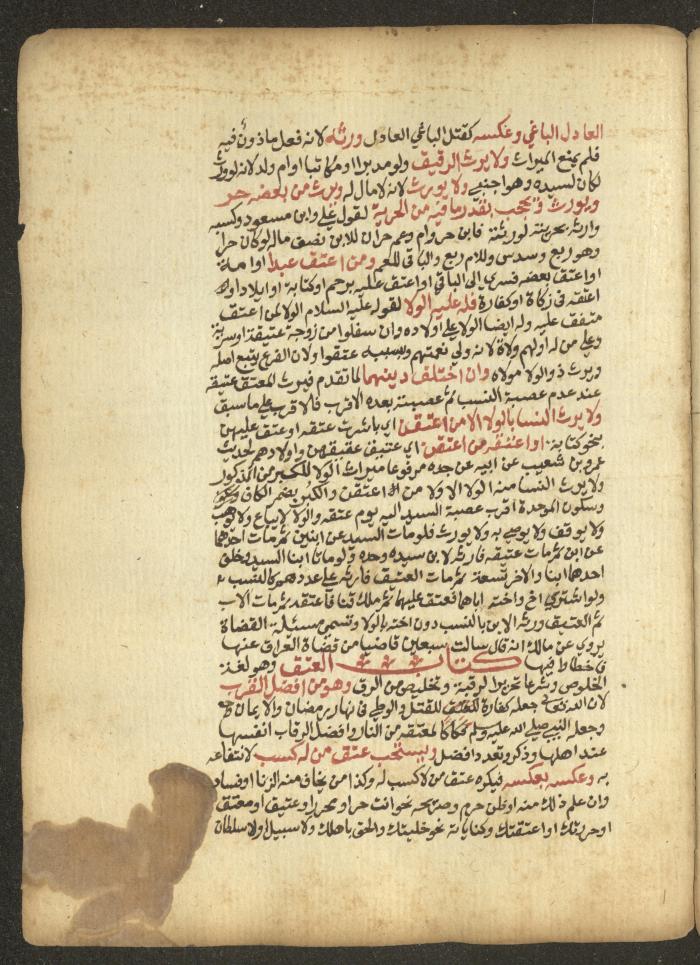 العادل الباغي وعكسه كقتل الباغي العادل ورثه لانه فعل ماذون فيه
فلم يمنع الميراث ولا يرث الرقيق ولو مدبرا او مكاتبا او ام ولد لانه لو ورث
لكان لسيده وهو اجنبي ولا يورث لانه لا مال له ويرث من بعضه حر
ويورث ويحجب بقدر ما فيه من الحرية لقول علي وابن مسعود وكسبه
وارثه بحريته لورثته فابن حر وام وعم حران للابن نصف ماله لو كان حرا
وهو ربع وسدس وللام ربع والباقي للعم ومن اعتق عبدا او امة
او اعتق بعضه فسري الى الباقي او اعتق عليه برحم او كتابة او ايلاد او
اعتقه في زكاة او كفارة فله عليه الولا لقوله عليه السلام الولا لمن اعتق
متفق عليه وله ايضا الولا على اولاده وان سفلوا من زوجة عتيقة او سرية
وعلى من له او لهم ولاه لانه ولي نعمتهم وبسببه عتقوا ولان الفرع يتبع اصله
ويرث ذو الولا مولاه وان اختلف دينهما لما تقدم فيرث المعتق عتيقه
عند عدم عصبة النسب ثم عصبته بعده الاقرب فالاقرب على ما سبق
ولا يرث النسا بالولا الا من اعتقن اي باشرت عتقه او عتق عليهن
بنحو كتابة او اعتقه من اعتقن اي عتيق عتيقهن واولادهم لحديث
عمرو بن شعيب عن ابيه عن جده مرفوعا ميراث الولا للكبر من الذكور
ولا يرث النسا من الولا الا ولا من اعتقن والكبر بضم الكاف
وسكون الموحدة اقرب عصبة السيد اليه يوم عتقه والولا لا يباع ولا يوهب
ولا يوقف ولا يوصى به ولا يورث فلو مات السيد عن ابنين ثم مات احدهما
عن ابن ثم مات عتيقه فارثه لابن سيده وحده ولو مات ابنا السيد وخلف
احدهما ابنا والاخر تسعة ثم مات العتيق فارثه على عددهم كالنسب
ولو اشترى اخ واخته اباهما فعتق عليهما ثم ملك قنا فاعتقه ثم مات الاب
ثم العتيق ورثه الابن بالنسب دون اخته بالولا وتسمى مسئلة القضاة
يروى عن مالك انه قال سالت سبعين قاضيا من قضاة العراق عنها
فاخطاوا فيها كتاب العتق وهو لغة
الخلوص وشرعا تحرير الرقبة وتخليص من الرق وهو من افضل القرب
لان الله تعالى جعله كفارة للقتل والوطي في نهار رمضان والايمان
وجعله النبي صلى الله عليه وسلم فكاكا لمعتقه من النار وافضل الرقاب انفسها
عند اهلها وذكر وتعدد افضل ويستحب عتق من له كسب لانتفاعه
به وعكسه بعكسه فيكره عتق من لا كسب له وكذا من يخاف منه الزنا او فساد
وان علم ذلك منه او ظن حرم وصريحه نحو انت حر او محرر او عتيق او معتق
او حررتك او اعتقتك وكناياته نحو خليتك والحق باهلك ولا سبيل او لا سلطان